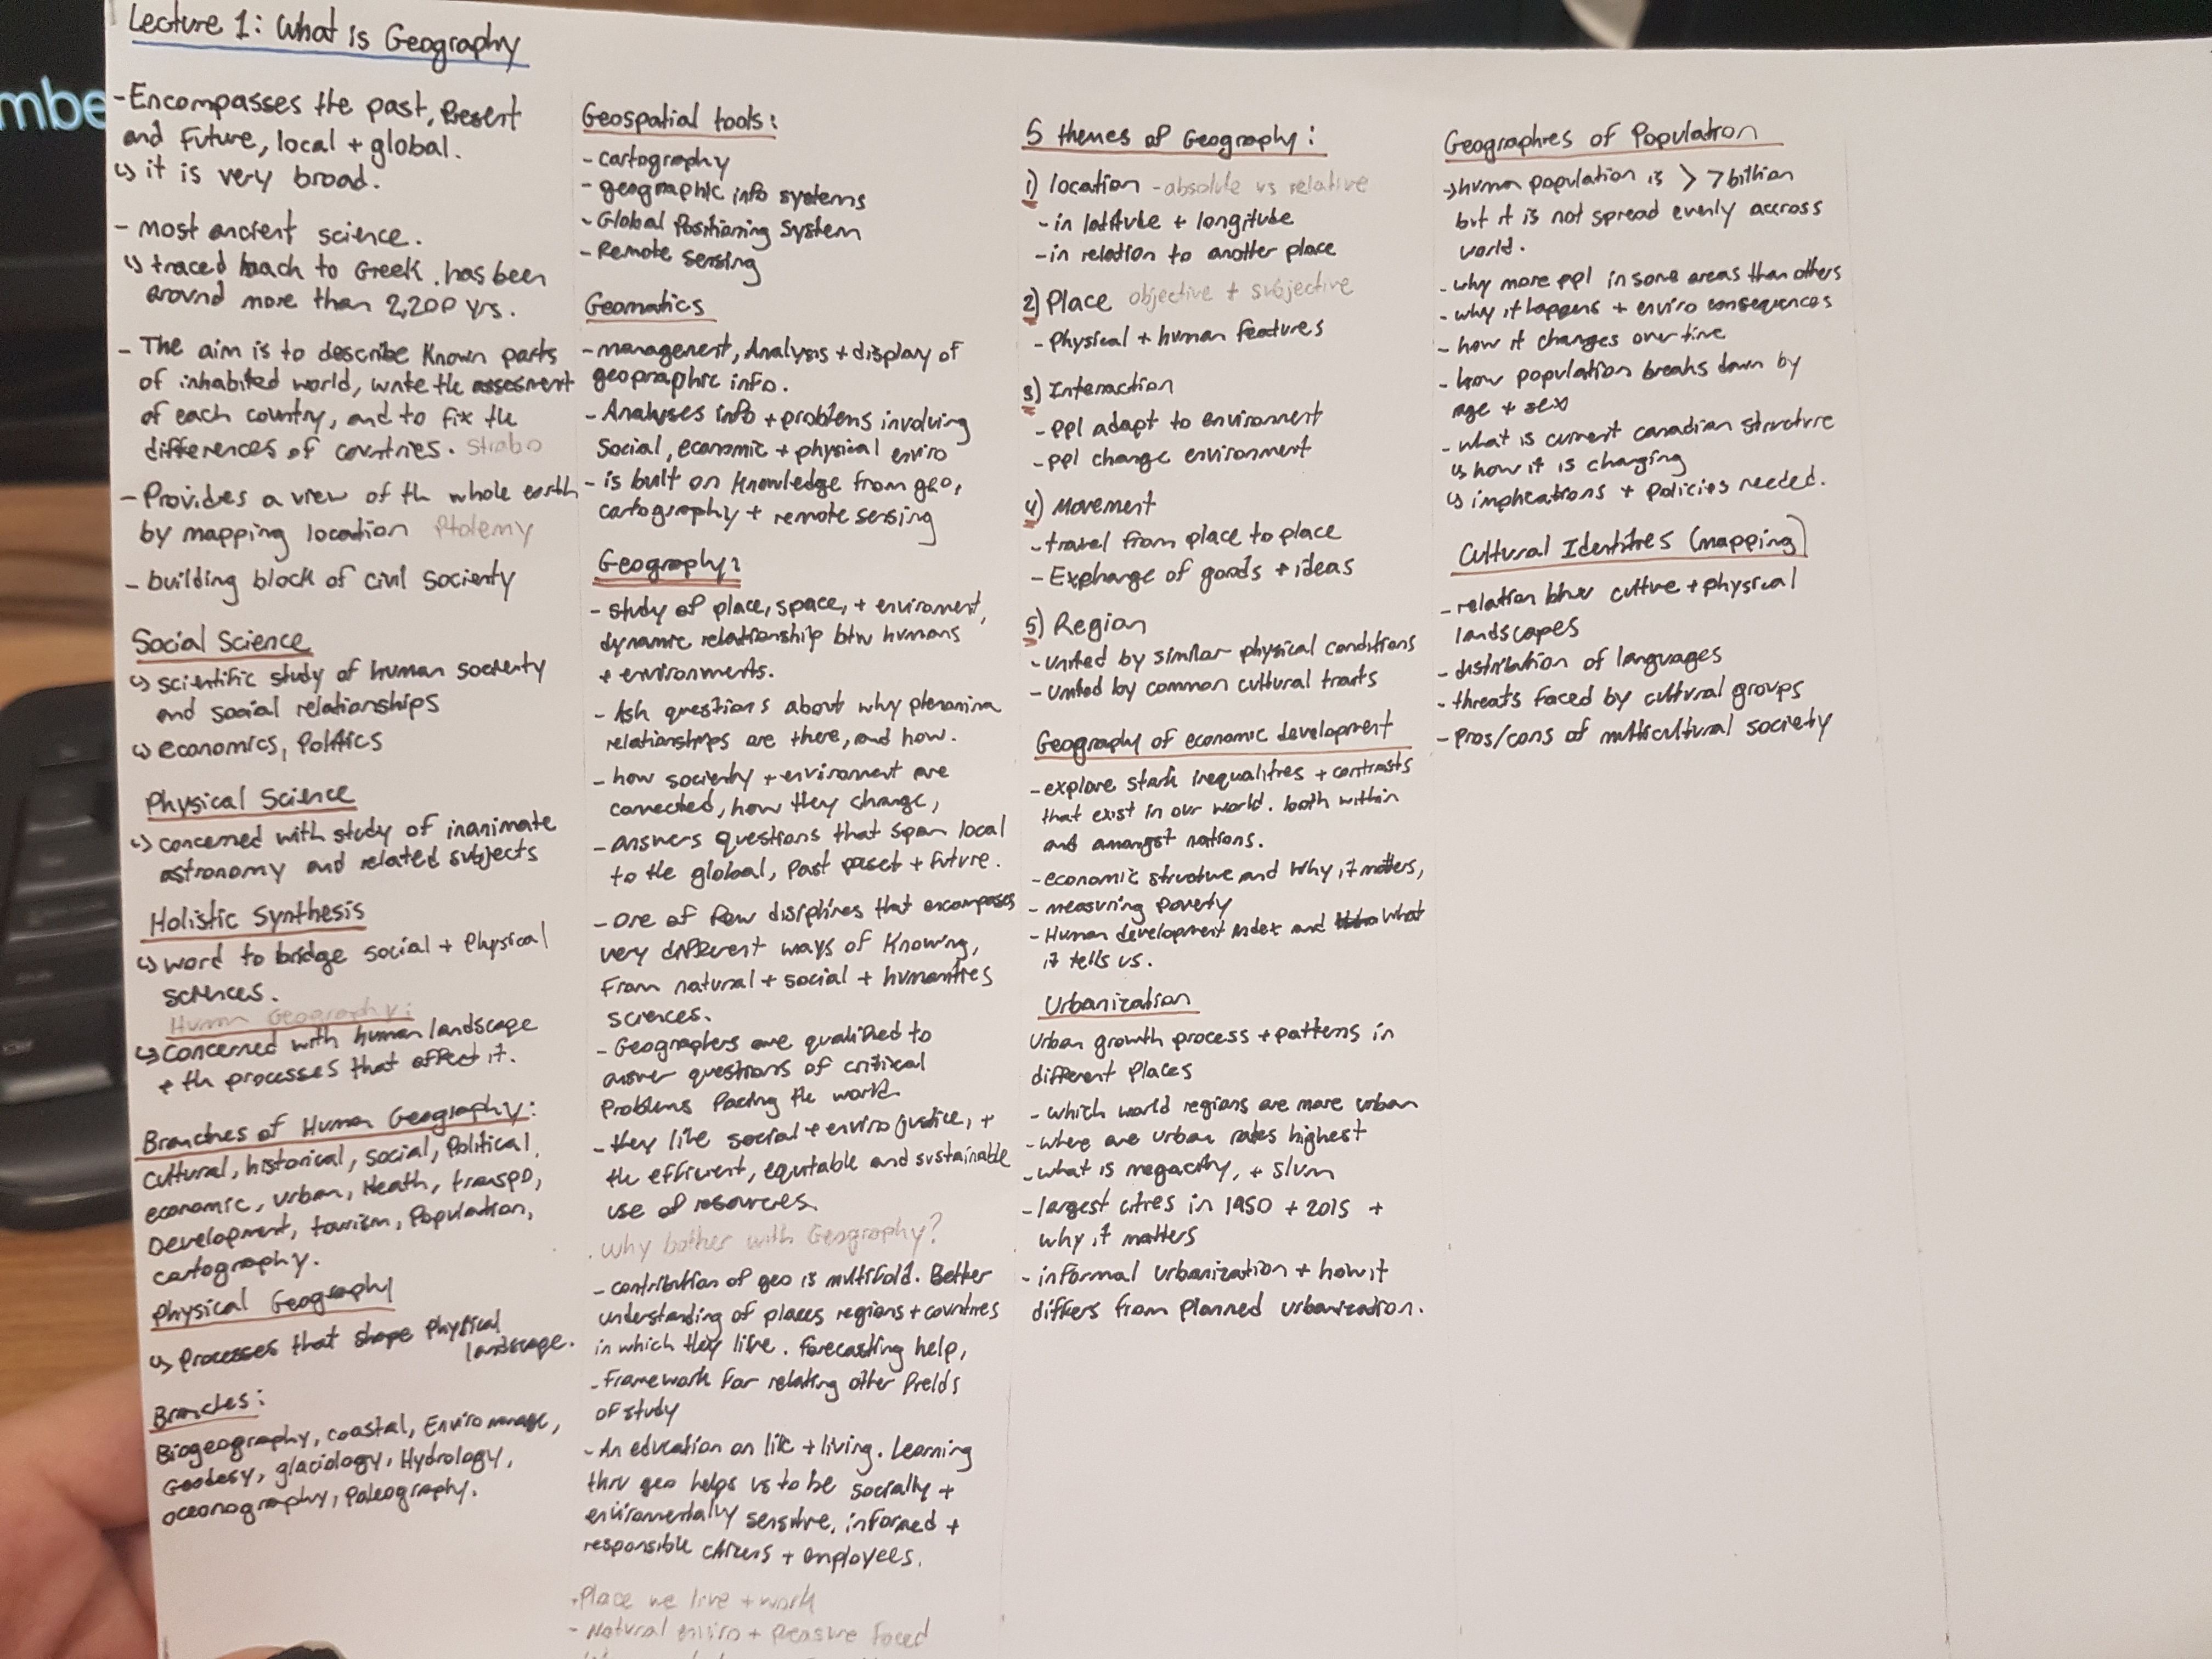 Lecture 1: What is Geography
mbe
-Encompasses the past, Present
and Future, local + global.
↳ it is very broad.
- most ancient science.
↳ traced back to Greek. has been
around more than 2,200 yrs.
- The aim is to describe Known parts
of inhabited world, write the assesment
of each country, and to fix the
differences of countries. Strabo
- Provides a view of th whole earth
by mapping location Ptolemy
- building block of civil socienty
Social Science
↳ scientific study of human socienty
and social relationships
↳ economics, Politics
Physical Science
↳ concerned with study of inanimate
astronomy and related subjects
Holistic Synthesis
↳ word to bridge social + Physical
sciences.
Human Geography:
↳ concerned with human landscape
+ th processes that affect it.
Branches of Human Geography:
Cultural, historical, Social, Political,
economic, urban, Heath, transpo,
Development, tourism, Population,
cartography.
Physical Geography
↳ Processes that shape Physical
landscape.
Branches:
Biogeography, coastal, Enviro manage,
Geodesy, glaciology, Hydrology,
oceonography, Paleography.
Geospatial tools:
- cartography
- geographic info systems
- Global Positioning System
- Remote sensing
Geomatics
- management, Analysis + display of
geopraphic info.
- Analyses info + problems involving
Social, economic + physical enviro
- is built on Knowledge from geo,
cartography + remote sensing
Geography:
- study of place, space, + enviroment,
dynamic relationship btw humans
+ environments.
- Ask questions about why phenomina
relationships are there, and how.
- how socienty + enviroment are
connected, how they change,
- answers questions that span local
to the global, Past preset + future.
- One of few disiplines that encompases
very different ways of Knowing,
From natural + social + humanities
sciences.
- Geographers are qualified to
answer questions of critical
Problems facing the world.
- they like social + enviro justice, +
the efficient, equitable and sustainable
use of resources.
Why bother with Geography?
- contribution of geo is multifold. Better
understanding of places regions + countries
in which they live. forecasting help,
- Framework for relating other fields
of study
- An education on life + living. Learning
thru geo helps us to be socially +
enviromentally sensitive, informed +
responsible citizens + employees.
-Place we live + work
- Natural enviro + Pressure faced
5 themes of Geography:
1) location - absolute vs relative
- in latitube + longitube
- in relation to another place
2) Place objective + subjective
- Physical + human features
3) Interaction
- ppl adapt to environment
- ppl change environment
4) Movement
- travel from place to place
- Exphange of goods + ideas
5) Region
- United by similar physical conditions
- United by common cultural traits
Geography of economic development
- explore stark inequalities + contrasts
that exist in our world. both within
and amongst nations.
- economic structure and Why it matters,
- measuring Poverty
- Human development index and What
it tells us.
Urbanization
Urban growth process + patterns in
different Places
- which world regions are more urban
- where are urban rates highest
- what is megacity, + slum
- largest cities in 1950 + 2015 +
why it matters
- informal urbanization + how it
differs from planned urbanization.
Geographies of Population
→ human population is > 7 billion
but it is not spread evenly accross
world.
- why more ppl in some areas than others
- why it happens + enviro consequences
- how it changes over time
- how population breaks down by
age + sex
- what is current canadian structure
↳ how it is changing
↳ implications + Policies needed.
Cultural Identities (mapping)
- relation btw culture + physical
landscapes
- distribution of languages
- threats faced by cultural groups
- Pros/cons of multicultural society